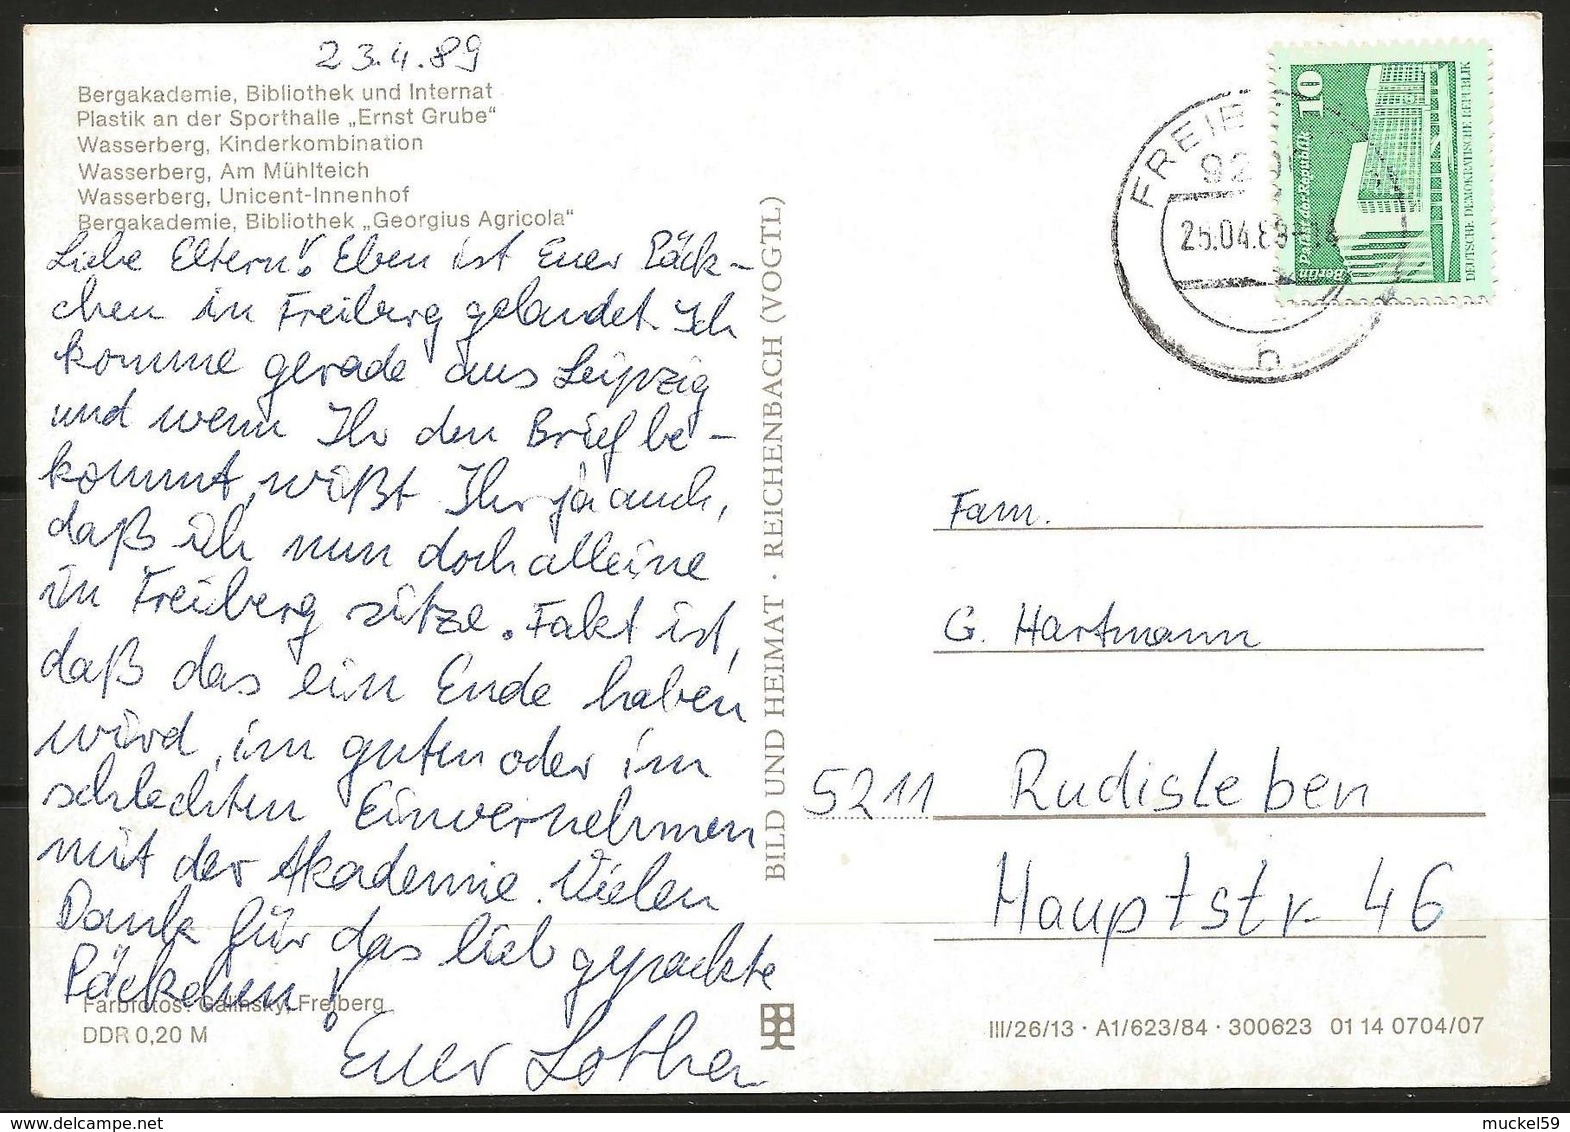 23.4.89
Bergakademie, Bibliothek und Internat
Plastik an der Sporthalle „Ernst Grube“
Wasserberg, Kinderkombination
Wasserberg, Am Mühlteich
Wasserberg, Unicent-Innenhof
Bergakademie, Bibliothek „Georgius Agricola“
Liebe Eltern! Eben ist Euer Päck-
chen in Freiberg gelandet. Ich
komme gerade aus Leipzig
und wenn Ihr den Brief be-
kommt, wißt Ihr ja auch,
daß ich nun doch alleine
in Freiberg sitze. Fakt ist,
daß das ein Ende haben
wird, im guten oder im
schlechten Einvernehmen
mit der Akademie. Vielen
Dank für das lieb gepackte
Päckchen!
Euer Lothar
Farbfotos: Galinsky, Freiberg
DDR 0,20 M
BILD UND HEIMAT · REICHENBACH (VOGTL)
FREIB
92
25.04.89-14
h
10
Berlin Palast der Republik
DEUTSCHE DEMOKRATISCHE REPUBLIK
Fam.
G. Hartmann
5211 Rudisleben
Hauptstr. 46
III/26/13 · A1/623/84 · 300623 01 14 0704/07
muckel59